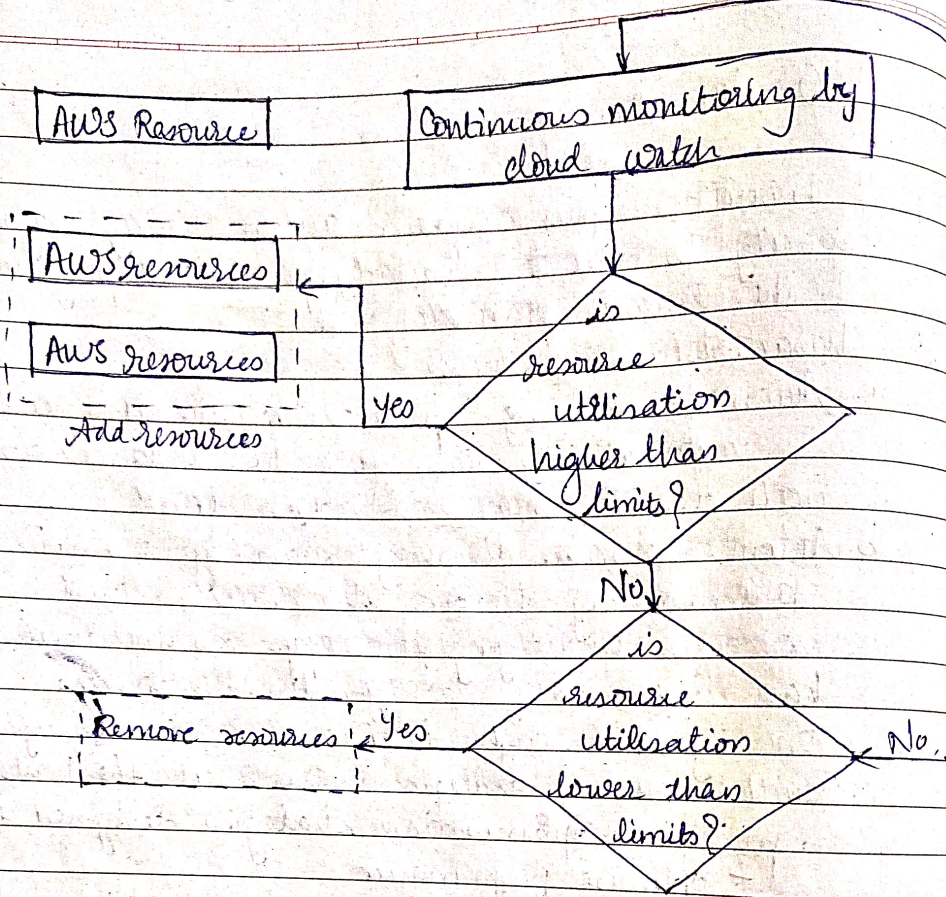 AWS Rasource
Continuous monitoring by
cloud watch
AWS resources
AWS resources
Add resources
is
resource
utilisation
higher than
limits?
Yes
No
is
resource
utilisation
lower than
limits?
Yes
Remove resources
No.